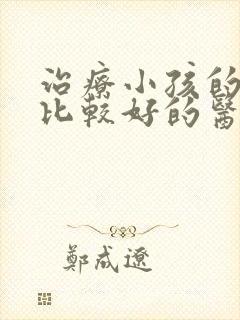 治療小孩的
比較好的醫
鄭咸遼